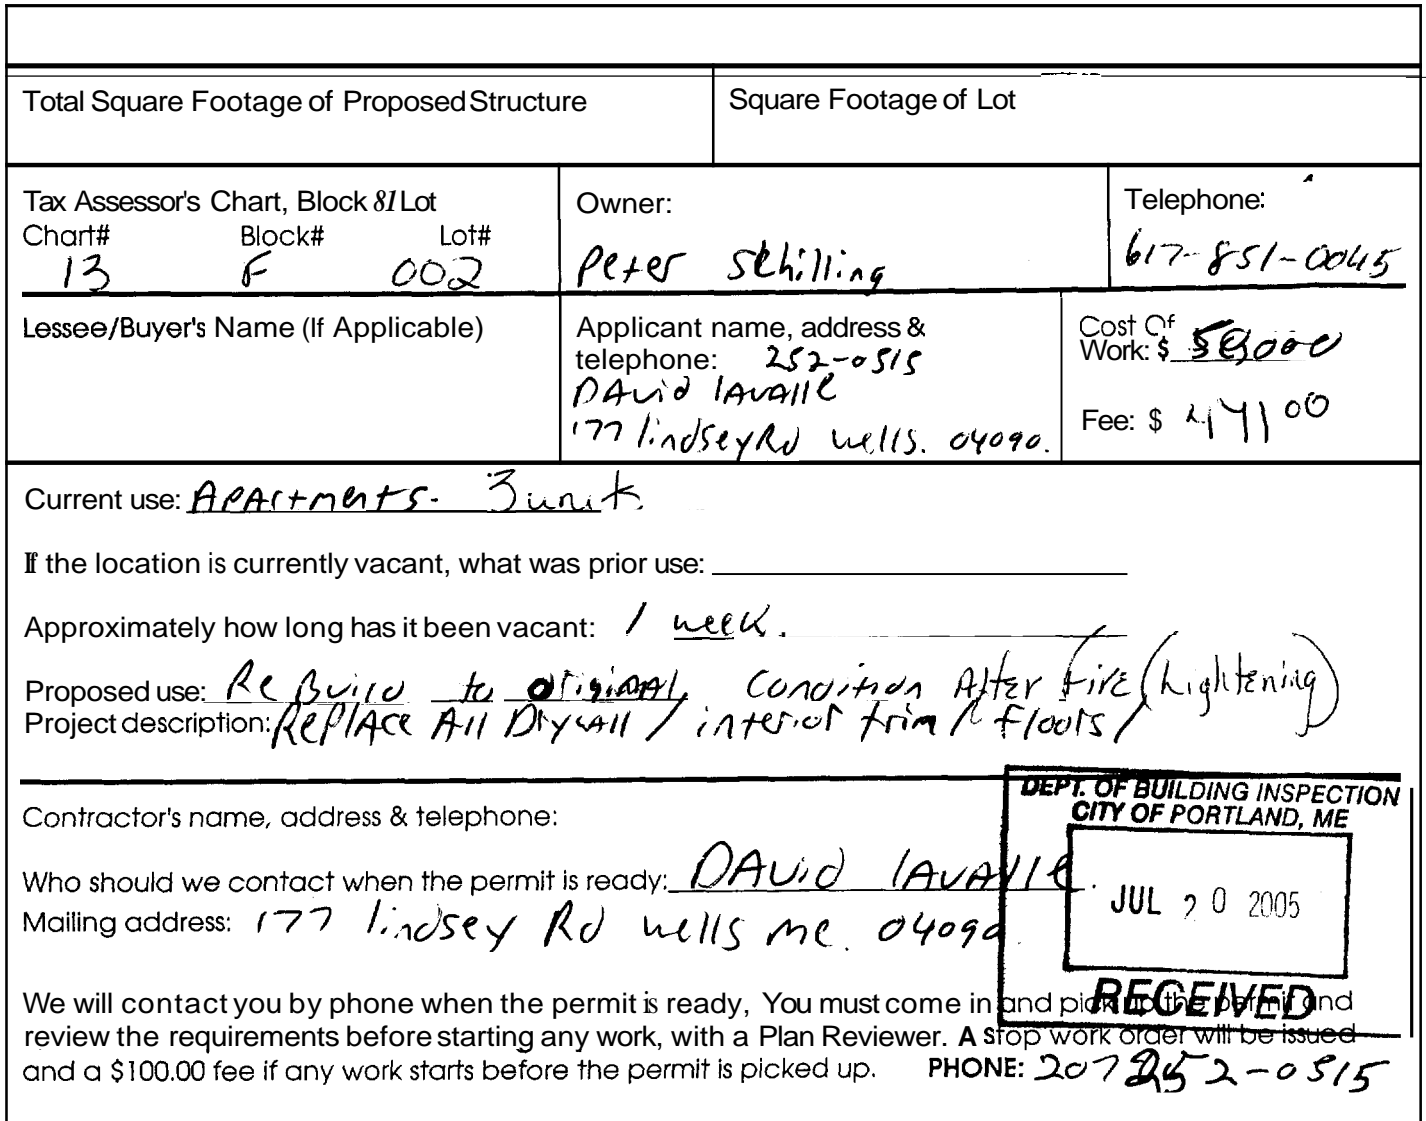 Total Square Footage of Proposed Structure
Square Footage of Lot
Tax Assessor's Chart, Block 81 Lot
Chart# Block# Lot#
13 F 002
Owner:
Peter Schilling
Telephone:
617-851-0045
Lessee/Buyer's Name (If Applicable)
Applicant name, address &
telephone: 252-0515
DAvid lAvAllE
177 lindsey Rd wells. 04090.
Cost Of
Work: $ 50,000
Fee: $ 471 00
Current use: APArtments. 3 unit
If the location is currently vacant, what was prior use:
Approximately how long has it been vacant: 1 week.
Proposed use: Re Build to originAl Condition After Fire (Lightening)
Project description: RePlAce All Drywall / interior trim / floors /
Contractor's name, address & telephone:
Who should we contact when the permit is ready: DAvid lAvAllE.
Mailing address: 177 lindsey Rd wells me. 04090
DEPT. OF BUILDING INSPECTION
CITY OF PORTLAND, ME
JUL 20 2005
RECEIVED
We will contact you by phone when the permit is ready, You must come in and pick up the permit and
review the requirements before starting any work, with a Plan Reviewer. A stop work order will be issued
and a $100.00 fee if any work starts before the permit is picked up. PHONE: 207 252-0515